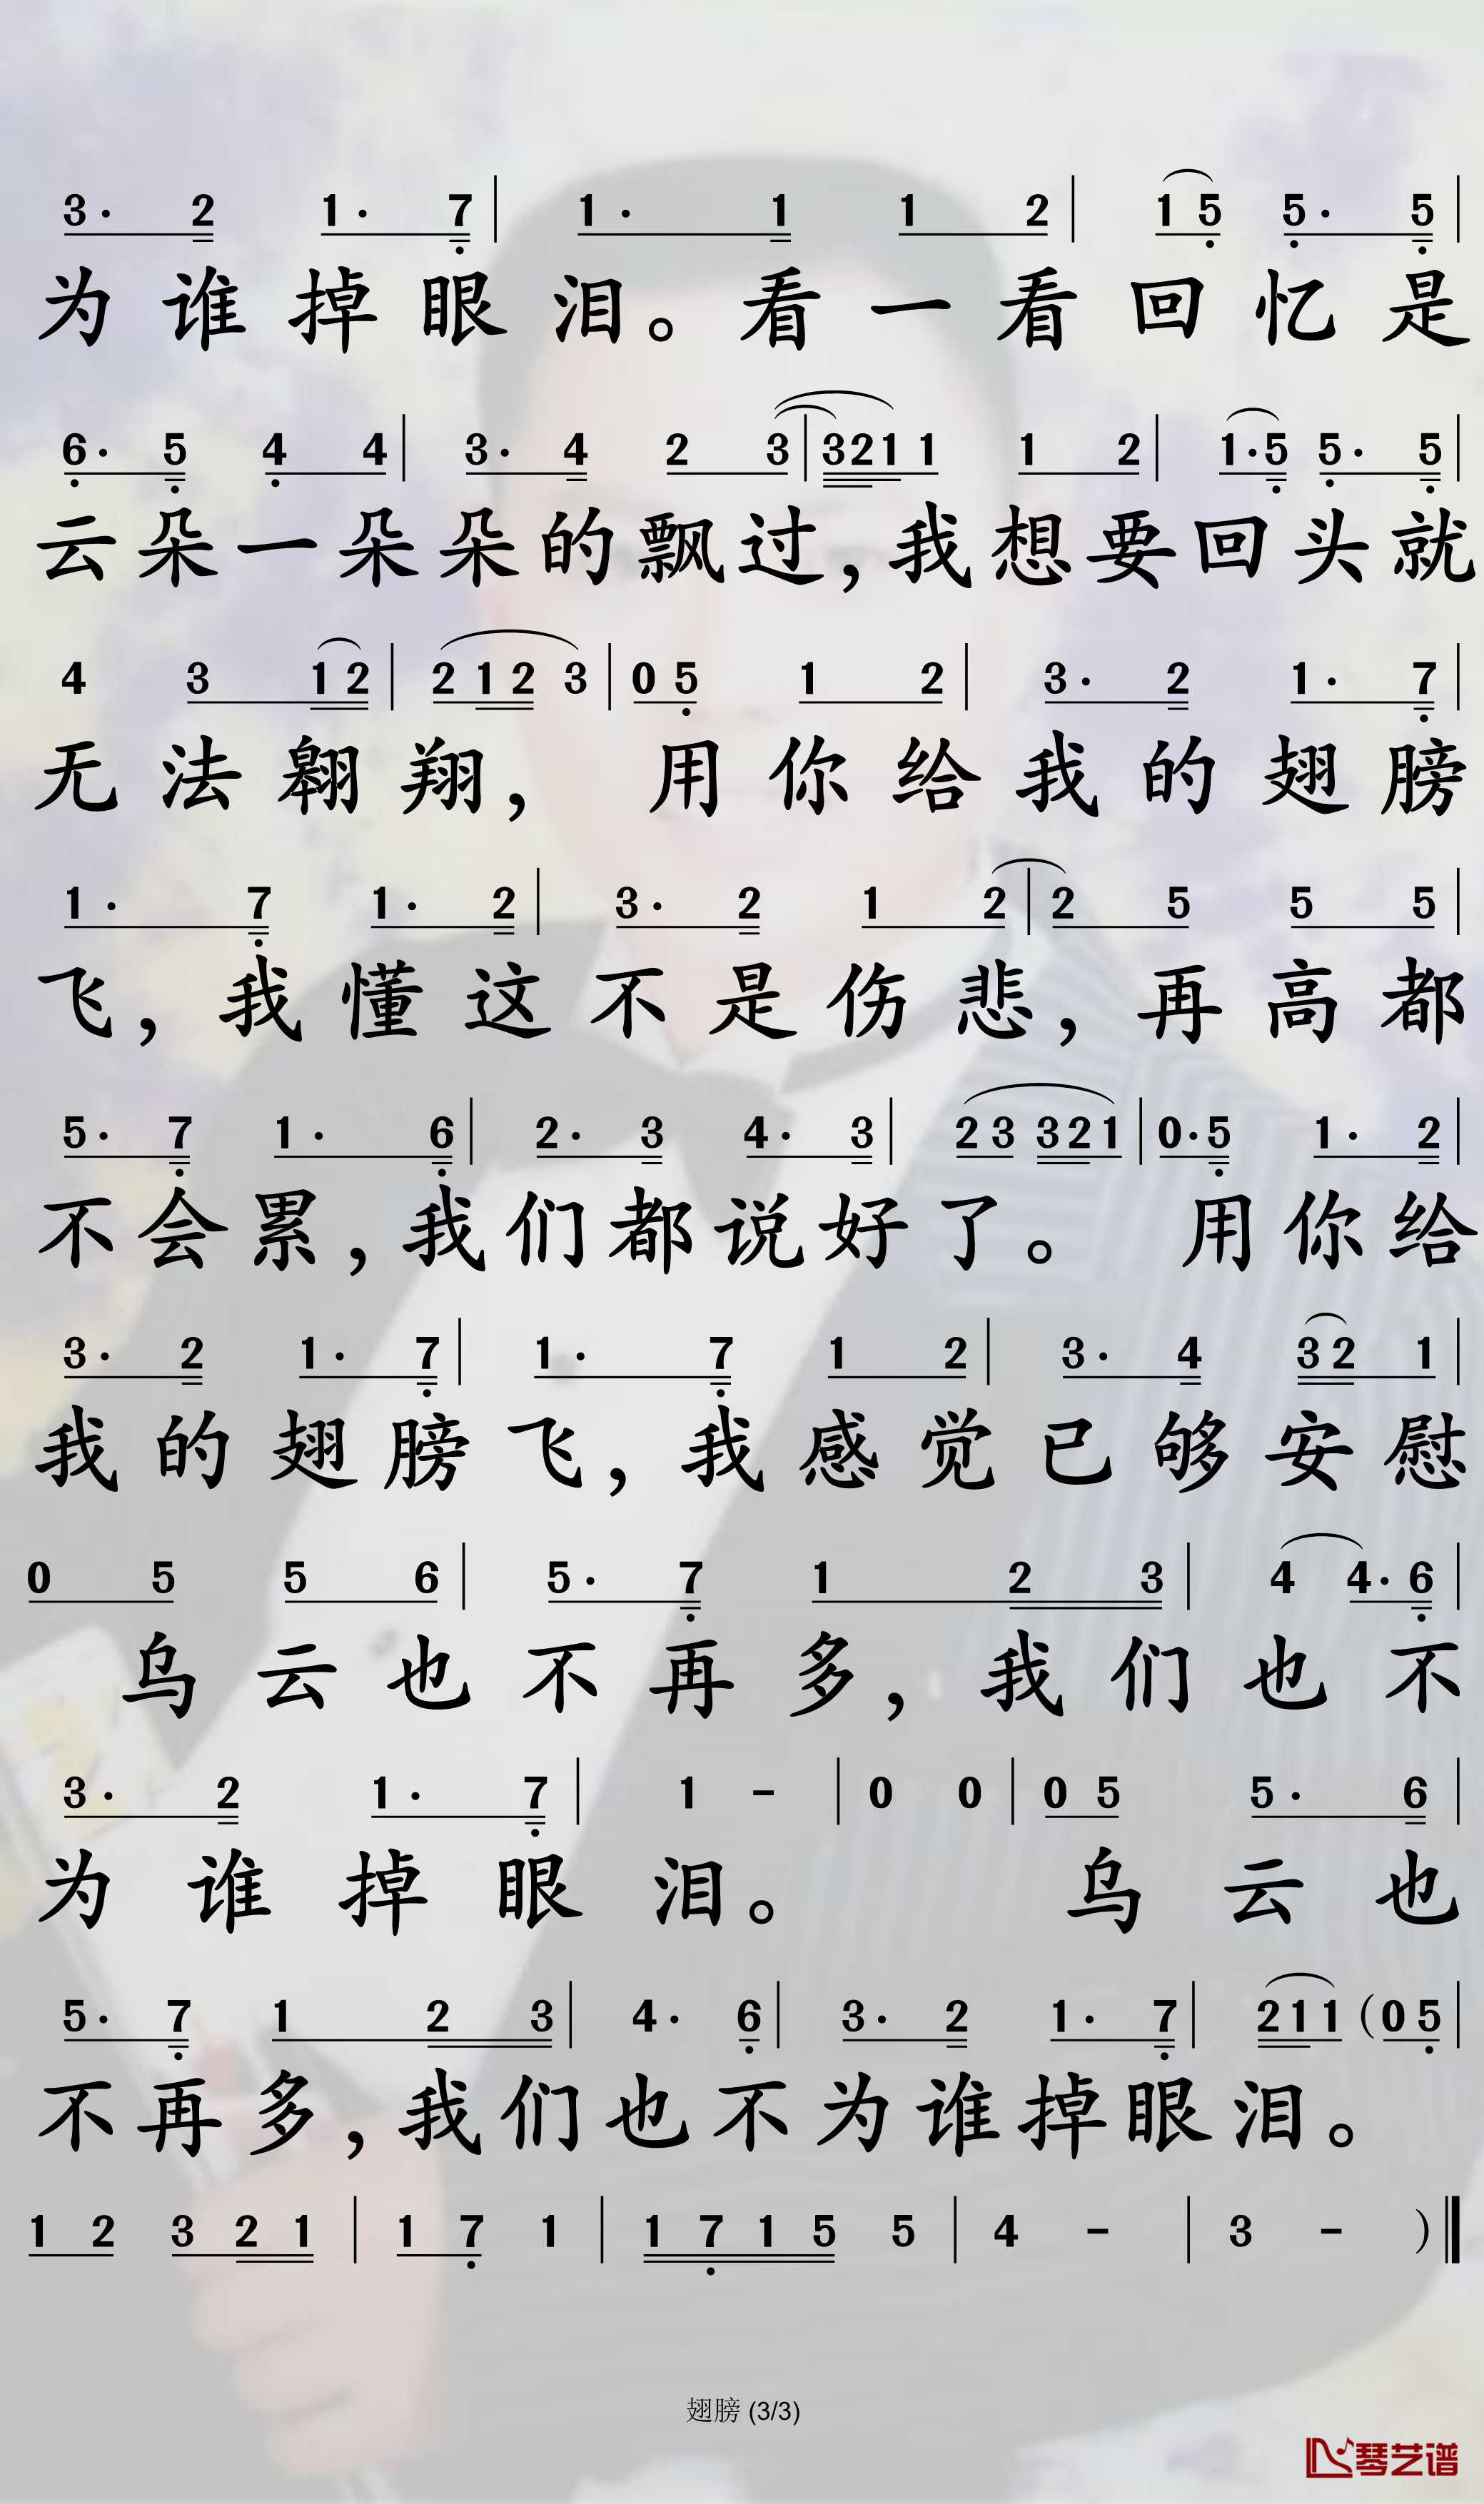 3· 2 1· 7 | 1· 1 1 2 | 1 5 5· 5 |
为谁掉眼泪。看一看回忆是
6· 5 4 4 | 3· 4 2 3 | 3 2 1 1 1 2 | 1· 5 5· 5 |
云朵一朵朵的飘过,我想要回头就
4 3 1 2 | 2 1 2 3 | 0 5 1 2 | 3· 2 1· 7 |
无法翱翔, 用你给我的翅膀
1· 7 1· 2 | 3· 2 1 2 | 2 5 5 5 |
飞,我懂这不是伤悲,再高都
5· 7 1· 6 | 2· 3 4· 3 | 2 3 3 2 1 | 0· 5 1· 2 |
不会累,我们都说好了。 用你给
3· 2 1· 7 | 1· 7 1 2 | 3· 4 3 2 1 |
我的翅膀飞,我感觉已够安慰
0 5 5 6 | 5· 7 1 2 3 | 4 4· 6 |
乌云也不再多,我们也不
3· 2 1· 7 | 1 - | 0 0 | 0 5 5· 6 |
为谁掉眼泪。 乌云也
5· 7 1 2 3 | 4· 6 | 3· 2 1· 7 | 2 1 1 (0 5 |
不再多,我们也不为谁掉眼泪。
1 2 3 2 1 | 1 7 1 | 1 7 1 5 5 | 4 - | 3 - )‖
翅膀 (3/3)
琴艺谱